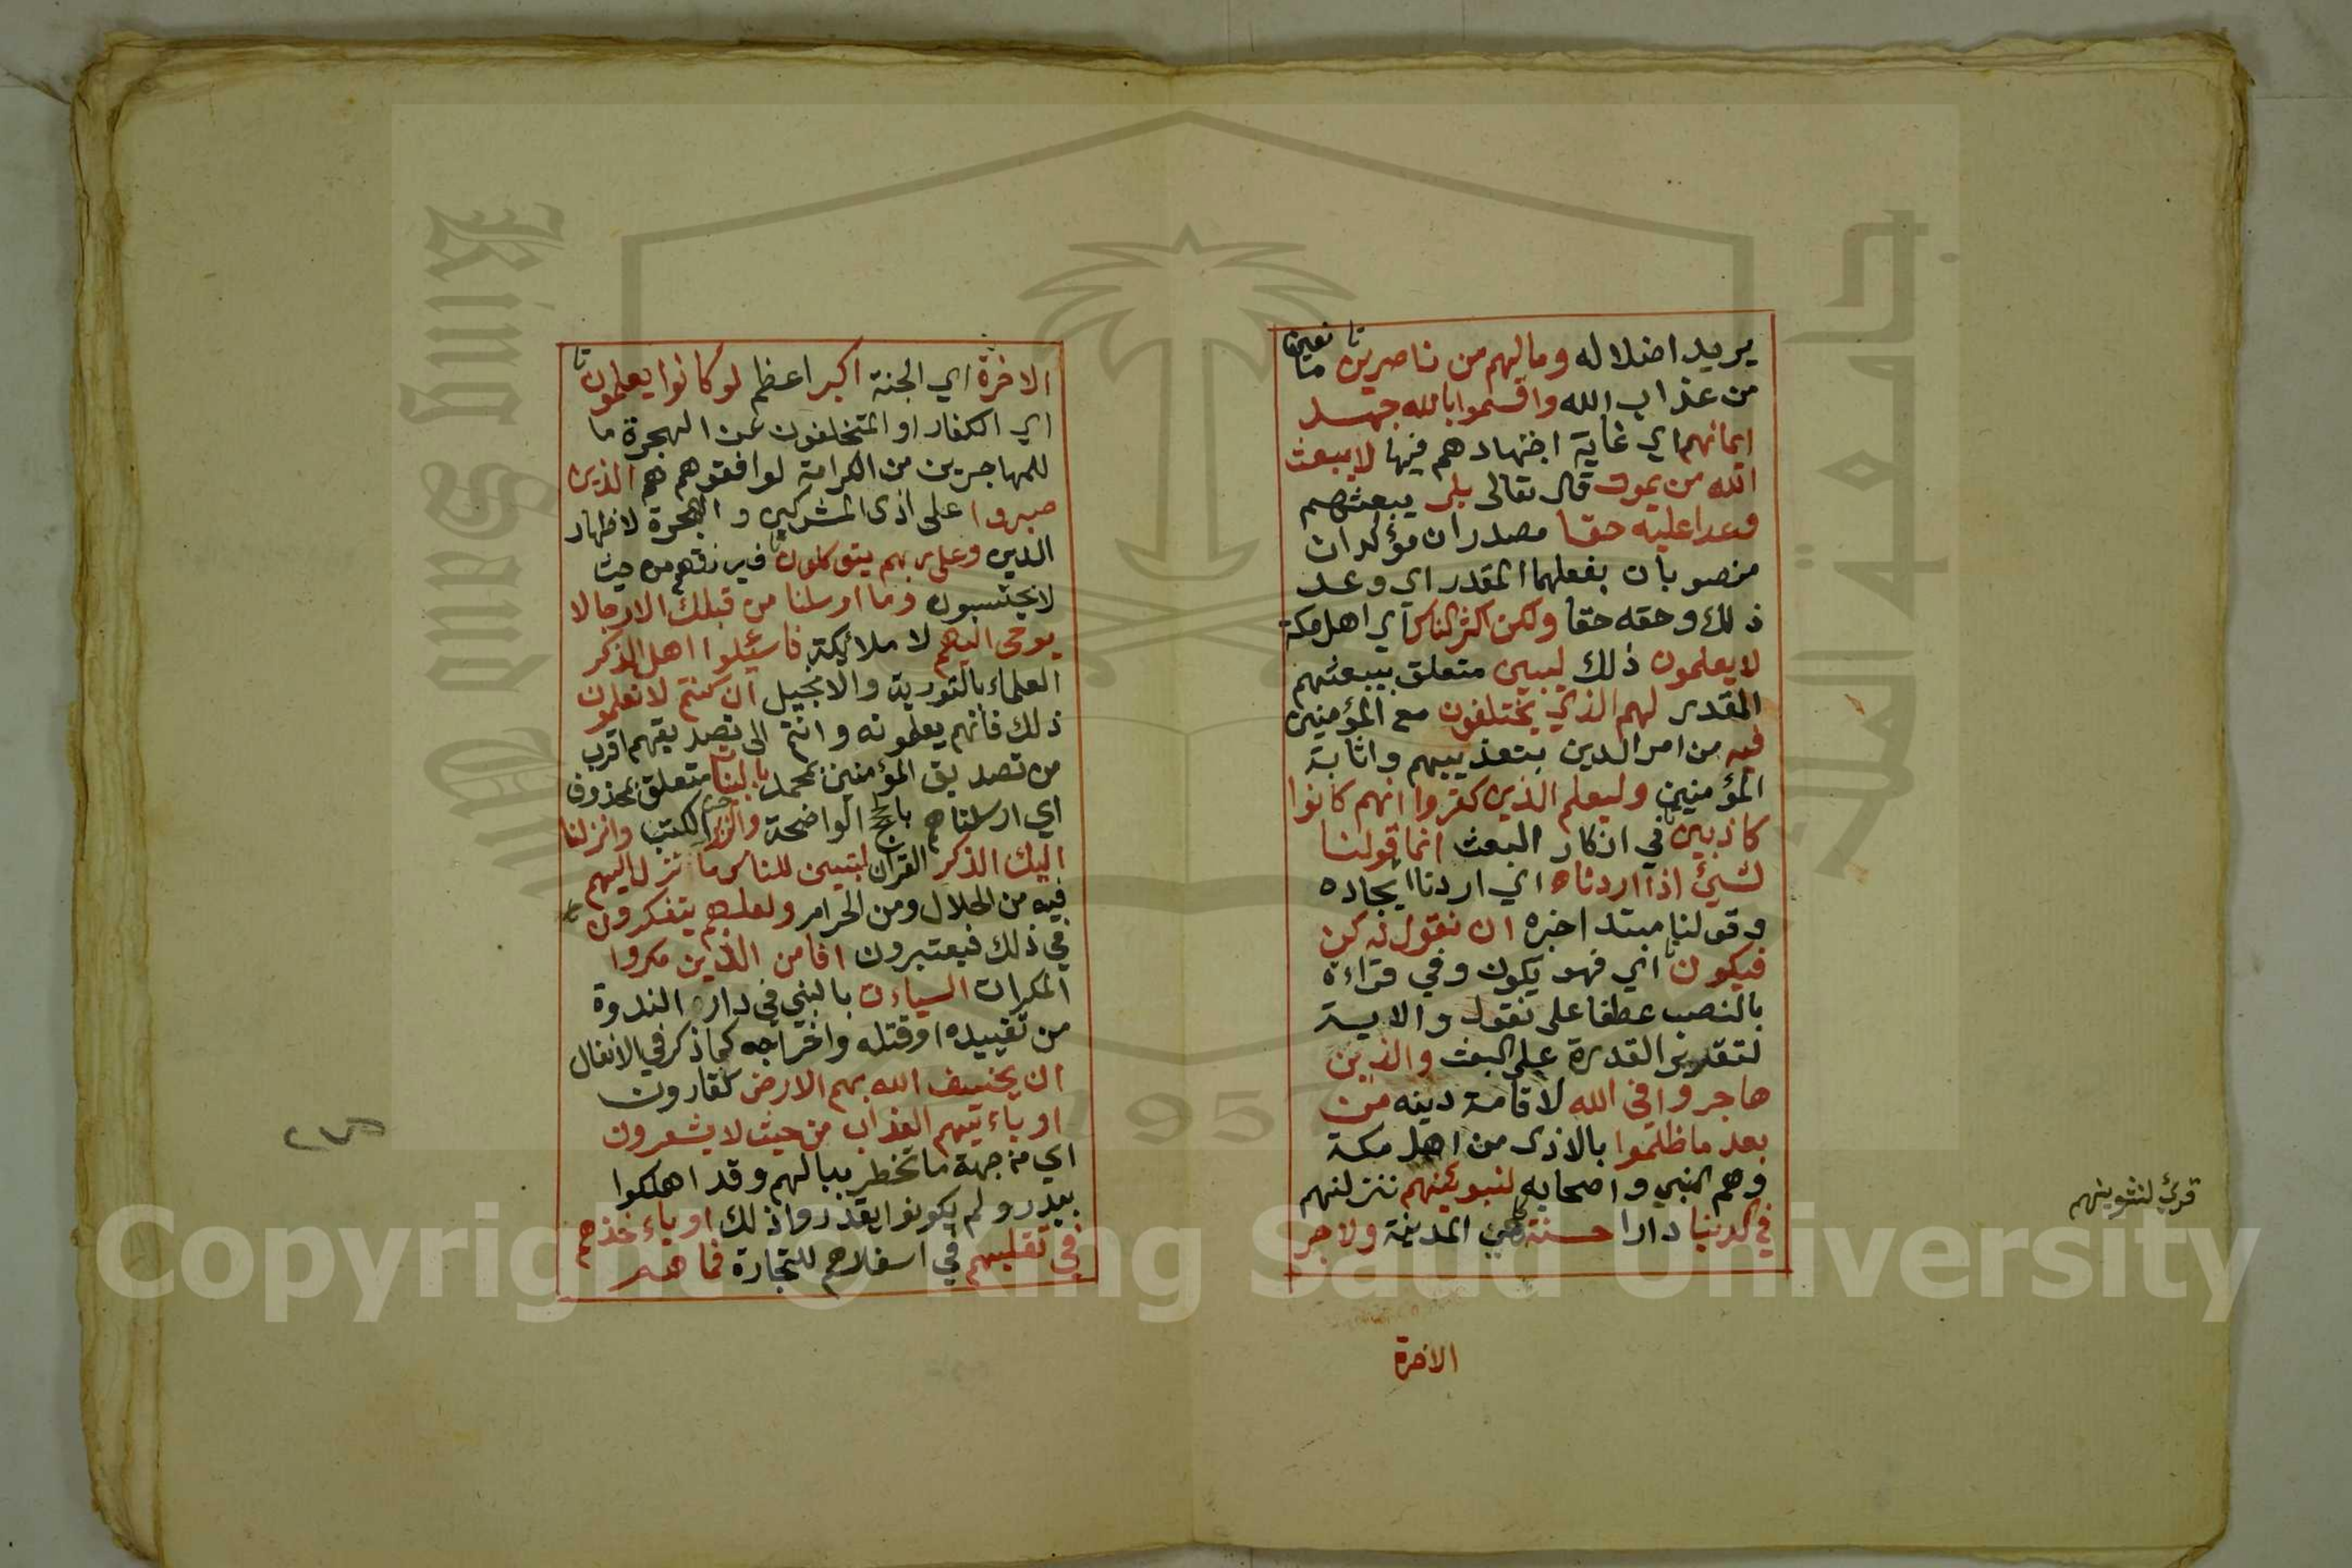 يريد اضلاله وما لهم من ناصرين مانعين
من عذاب الله واقسموا بالله جهد
ايمانهم اي غاية اجتهادهم فيها لا يبعث
الله من يموت قال تعالى بلى يبعثهم
وعدا عليه حقا مصدران مؤكدان
منصوبان بفعلهما المقدر اي وعد
ذلك وحقه حقا ولكن اكثر الناس اي اهل مكة
لا يعلمون ذلك ليبين متعلق بيبعثهم
المقدر لهم الذي يختلفون مع المؤمنين
فيه من امر الدين بتعذيبهم واثابة
المؤمنين وليعلم الذين كفروا انهم كانوا
كاذبين في انكار البعث انما قولنا
لشيئ اذا اردناه اي اردنا ايجاده
وقولنا مبتدا خبره ان نقول له كن
فيكون اي فهو يكون وفي قراءة
بالنصب عطفا على نقول والاية
لتقرير القدرة على البعث والذين
هاجروا في الله لاقامة دينه من
بعد ما ظلموا بالاذى من اهل مكة
وهم النبي واصحابه لنبوئنهم ننزلنهم
في الدنيا دارا حسنة هي المدينة ولاجر
الاخرة
قرئ لنثوينهم
الاخرة اي الجنة اكبر اعظم لو كانوا يعلمون
اي الكفار او المتخلفون عن الهجرة ما
للمهاجرين من الكرامة لوافقوهم هم الذين
صبروا على اذى المشركين والهجرة لاظهار
الدين وعلى ربهم يتوكلون فيرزقهم من حيث
لا يحتسبون وما ارسلنا من قبلك الا رجالا
يوحى اليهم لا ملائكة فاسئلوا اهل الذكر
العلماء بالتورية والانجيل ان كنتم لا تعلمون
ذلك فانهم يعلمونه وانتم الى تصديقهم اقرب
من تصديق المؤمنين بمحمد بالبينات متعلق بمحذوف
اي ارسلناهم بالحجج الواضحة والزبر الكتب وانزلنا
اليك الذكر القرآن لتبين للناس ما نزل اليهم
فيه من الحلال ومن الحرام ولعلهم يتفكرون
في ذلك فيعتبرون افامن الذين مكروا
المكرات السياءت بالنبي في دار الندوة
من تقييده او قتله واخراجه كما ذكر في الانفال
ان يخسف الله بهم الارض كقارون
او ياءتيهم العذاب من حيث لا يشعرون
اي من جهة ما تخطر ببالهم وقد اهلكوا
ببدر ولم يكونوا يقدروا ذلك او ياءخذهم
في تقلبهم في اسفارهم للتجارة فما هم
King Saud University
جامعة الملك سعود
1957
Copyright © King Saud University